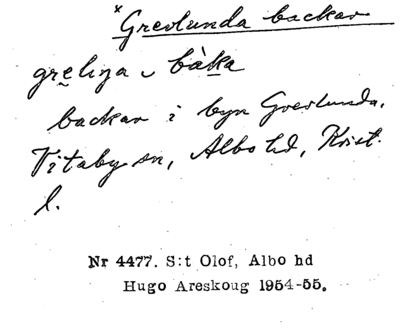 *Grevlunda backar
grẹliŋa ᴗ bàḵa
backar i byn Grevlunda,
Vitaby sn, Albo hd, Krist.
l.
Nr 4477. S:t Olof, Albo hd
Hugo Areskoug 1954-55.